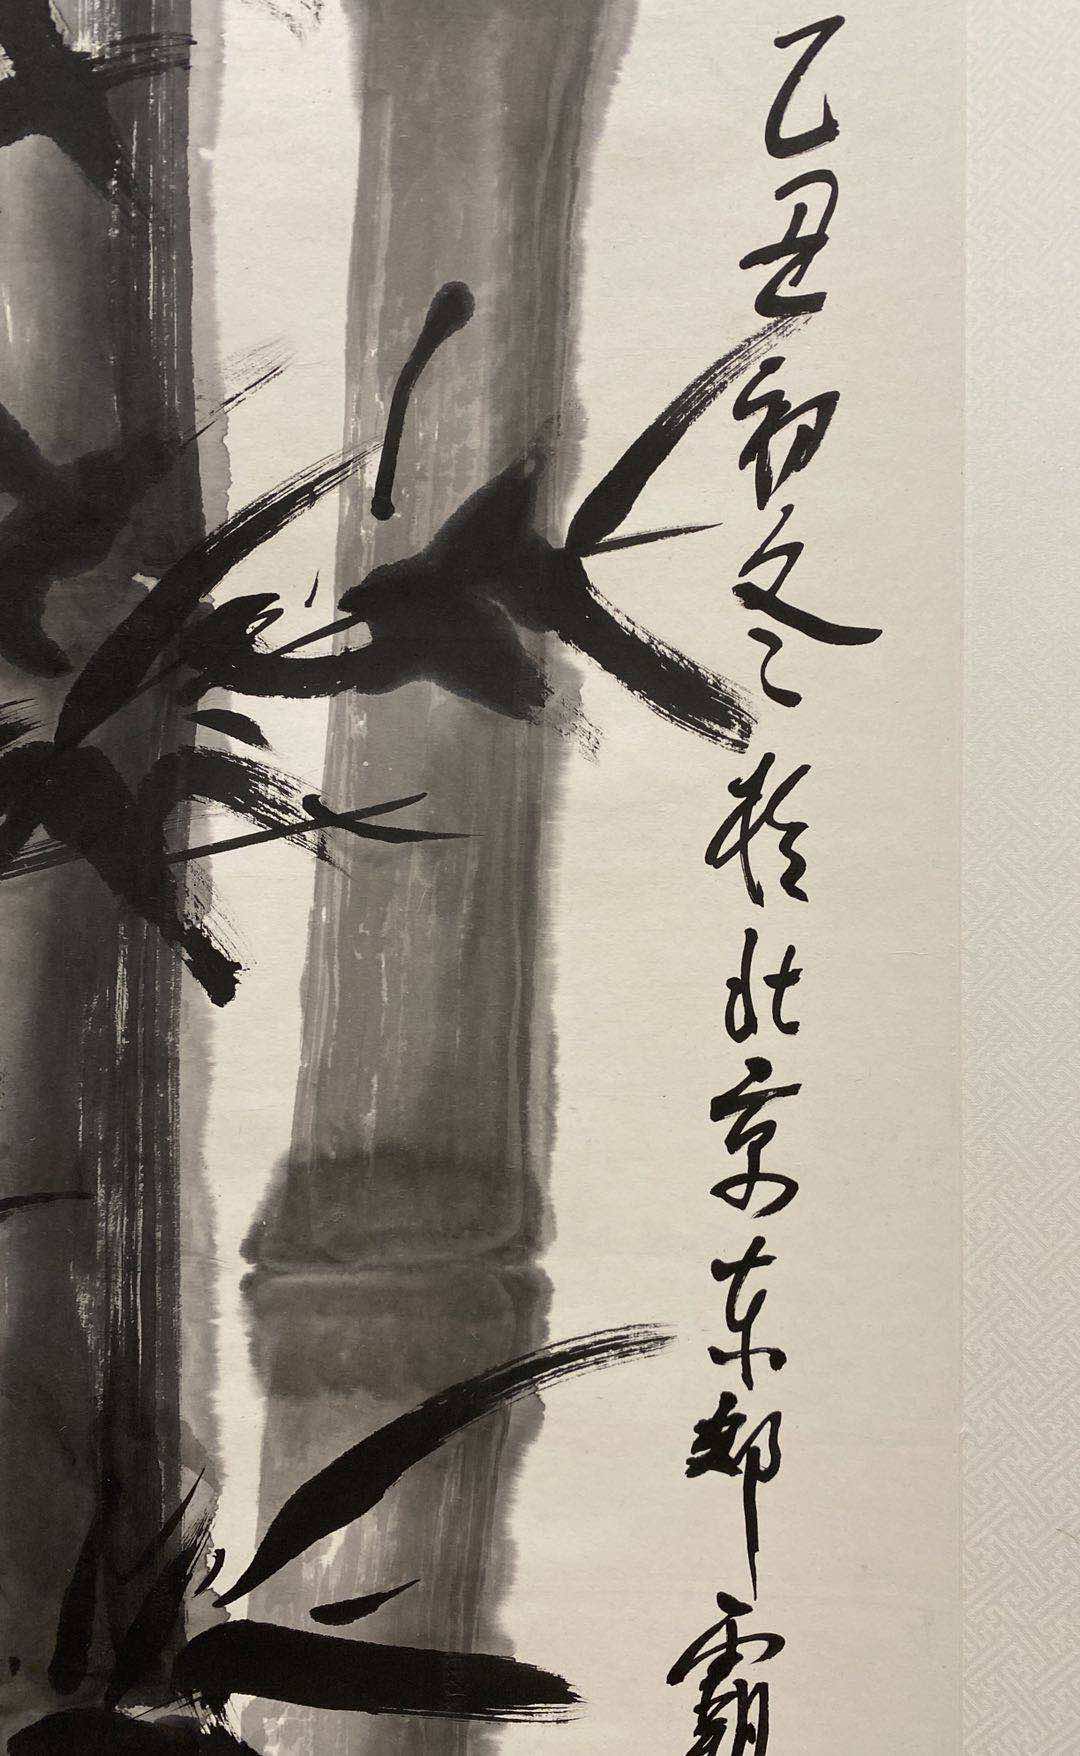 乙丑初冬於北京东郊霸